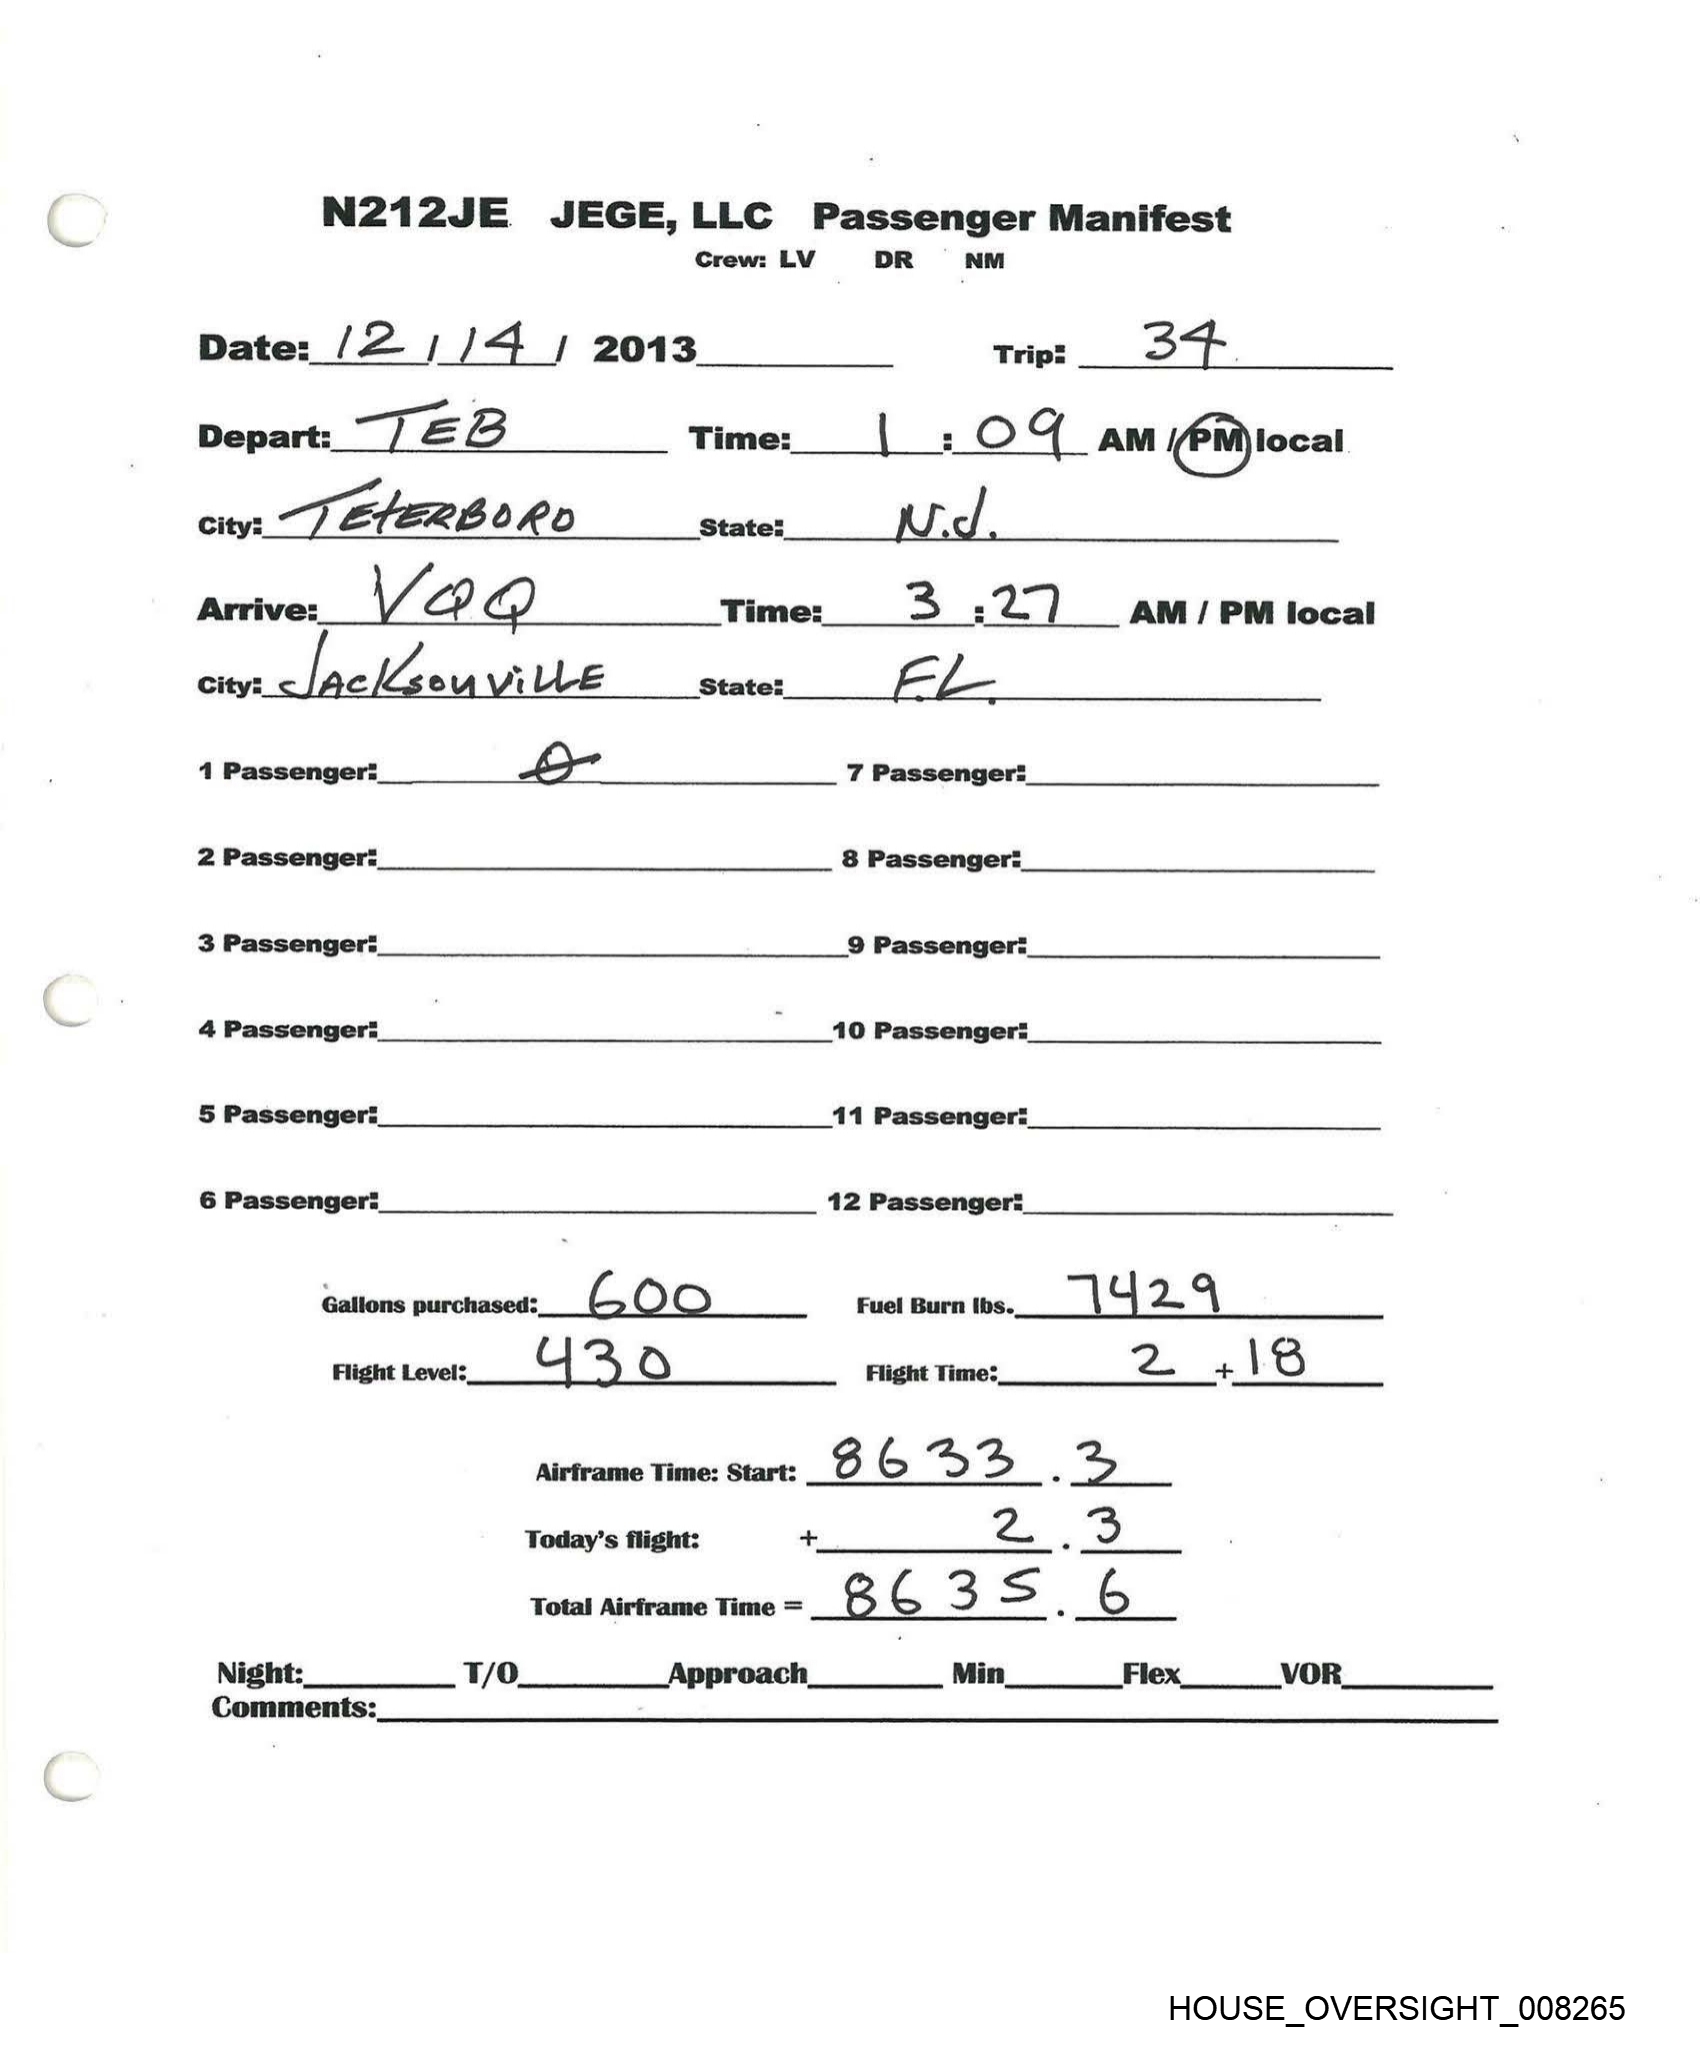 N212JE JEGE, LLC Passenger Manifest
Crew: LV DR NM
Date: 12 / 14 / 2013 Trip: 34
Depart: TEB Time: 1 : 09 AM / PM local
City: TETERBORO State: N.J.
Arrive: VQQ Time: 3 : 27 AM / PM local
City: JACKSONVILLE State: F.L.
1 Passenger: 0 7 Passenger:
2 Passenger: 8 Passenger:
3 Passenger: 9 Passenger:
4 Passenger: 10 Passenger:
5 Passenger: 11 Passenger:
6 Passenger: 12 Passenger:
Gallons purchased: 600 Fuel Burn lbs. 7429
Flight Level: 430 Flight Time: 2 + 18
Airframe Time: Start: 8633 . 3
Today's flight: + 2 . 3
Total Airframe Time = 8635 . 6
Night: T/O Approach Min Flex VOR
Comments:
HOUSE_OVERSIGHT_008265